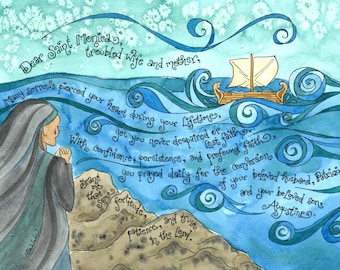 Dear Saint Monica,
troubled wife and mother,
Many sorrows pierced your heart during your lifetime,
yet you never despaired or lost faith.
With confidence, persistence, and profound faith,
you prayed daily for the conversion
of your beloved husband, Patricius
and your beloved son,
Augustine.
grant me that
same fortitude,
patience, and trust
in the Lord.